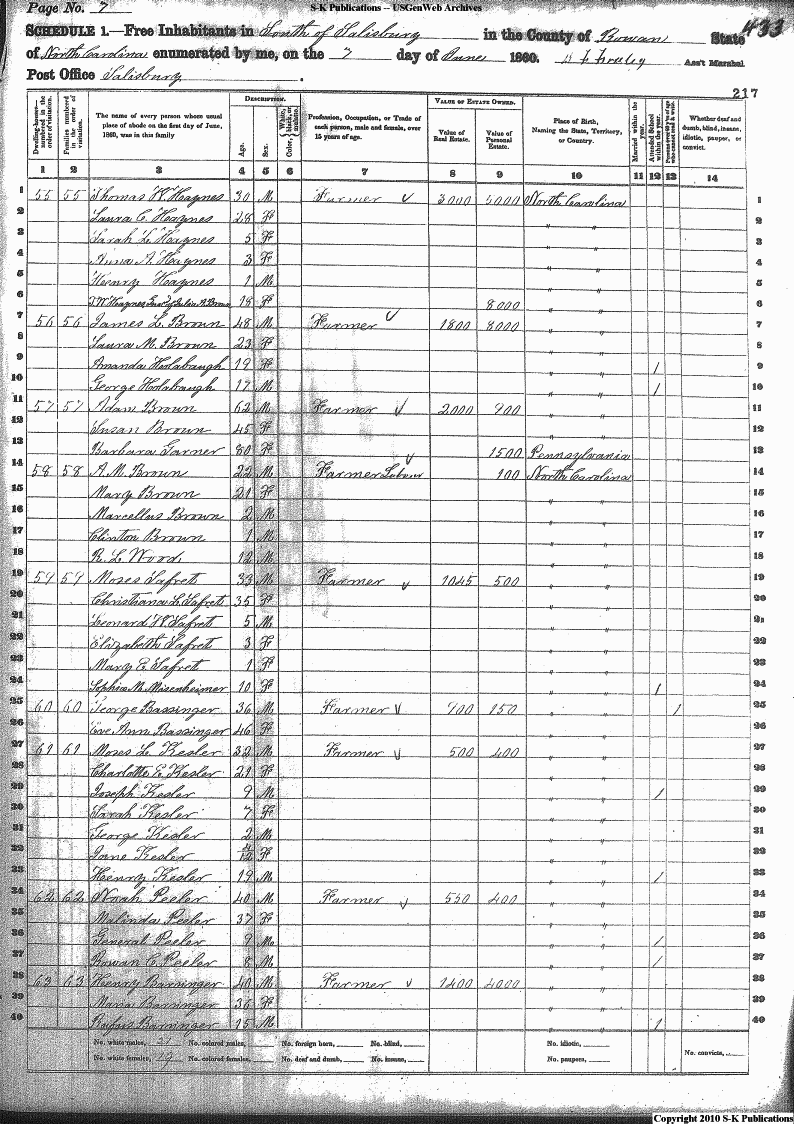 Page No. 7
S-K Publications -- USGenWeb Archives
433
SCHEDULE 1.—Free Inhabitants in South of Salisbury in the County of Rowan State
of North Carolina enumerated by me, on the 7 day of June 1860. Ass't Marshal
Post Office Salisbury.
217
Dwelling-houses—numbered in the order of visitation.
Families numbered in the order of visitation.
The name of every person whose usual place of abode on the first day of June, 1860, was in this family
DESCRIPTION.
Age.
Sex.
Color, White, black, or mulatto.
Profession, Occupation, or Trade of each person, male and female, over 15 years of age.
VALUE OF ESTATE OWNED.
Value of Real Estate.
Value of Personal Estate.
Place of Birth, Naming the State, Territory, or Country.
Married within the year.
Attended School within the year.
Whether deaf and dumb, blind, insane, idiotic, pauper, or convict.
1 2 3 4 5 6 7 8 9 10 11 12 13 14
1 55 55 Thomas W. Heaynes 30 M Farmer 3000 5000 North Carolina 1
2 Laura C. Heaynes 28 F " " 2
3 Sarah L. Heaynes 5 F " " 3
4 Anna A. Heaynes 3 F " " 4
5 Henry Heaynes 1 M " " 5
6 18 F 8000 " " 6
7 56 56 James L. Brown 48 M Farmer 1800 8000 " " 7
8 Laura M. Brown 23 F " " 8
9 Amanda Holabaugh 19 F " " / 9
10 George Holabaugh 17 M " " / 10
11 57 57 Adam Brown 62 M Farmer 2,000 900 " " 11
12 Susan Brown 45 F " " 12
13 Barbara Garner 80 F 1500 Pennsylvania 13
14 58 58 A. M. Brown 22 M Farmer Labour 100 North Carolina 14
15 Mary Brown 21 F " " 15
16 Marcellus Brown 2 M " " 16
17 Clinton Brown 1 M " " 17
18 R. L. Wood 12 M " " 18
19 59 59 Moses Lafret 33 M Farmer 1045 500 " " 19
20 Christiana L. Lafret 35 F " " 20
21 Leonard W. Lafret 5 M " " 21
22 Elizabeth Lafret 3 F " " 22
23 Mary E. Lafret 1 F " " 23
24 Sophia M. Misenheimer 10 F " " / 24
25 60 60 George Bassinger 36 M Farmer 900 150 " " / 25
26 Eve Ann Bassinger 46 F " " 26
27 61 61 Moses L. Kesler 32 M Farmer 500 400 " " 27
28 Charlotte E. Kesler 21 F " " 28
29 Joseph Kesler 9 M " " / 29
30 Sarah Kesler 7 F " " 30
31 George Kesler 2 M " " 31
32 Jane Kesler 4/12 F " " 32
33 Henry Kesler 19 M " " / 33
34 62 62 Noah Peeler 40 M Farmer 550 400 " " 34
35 Malinda Peeler 37 F " " 35
36 General Peeler 9 M " " / 36
37 Rowan C. Peeler 8 M " " / 37
38 63 63 Henry Barringer 40 M Farmer 1400 4000 " " 38
39 Maria Barringer 36 F " " 39
40 Rufus Barringer 15 M " " / 40
No. white males, 21 No. colored males, No. foreign born, No. blind, No. idiotic,
No. white females, 19 No. colored females, No. deaf and dumb, No. insane, No. paupers, No. convicts,
Copyright 2010 S-K Publications